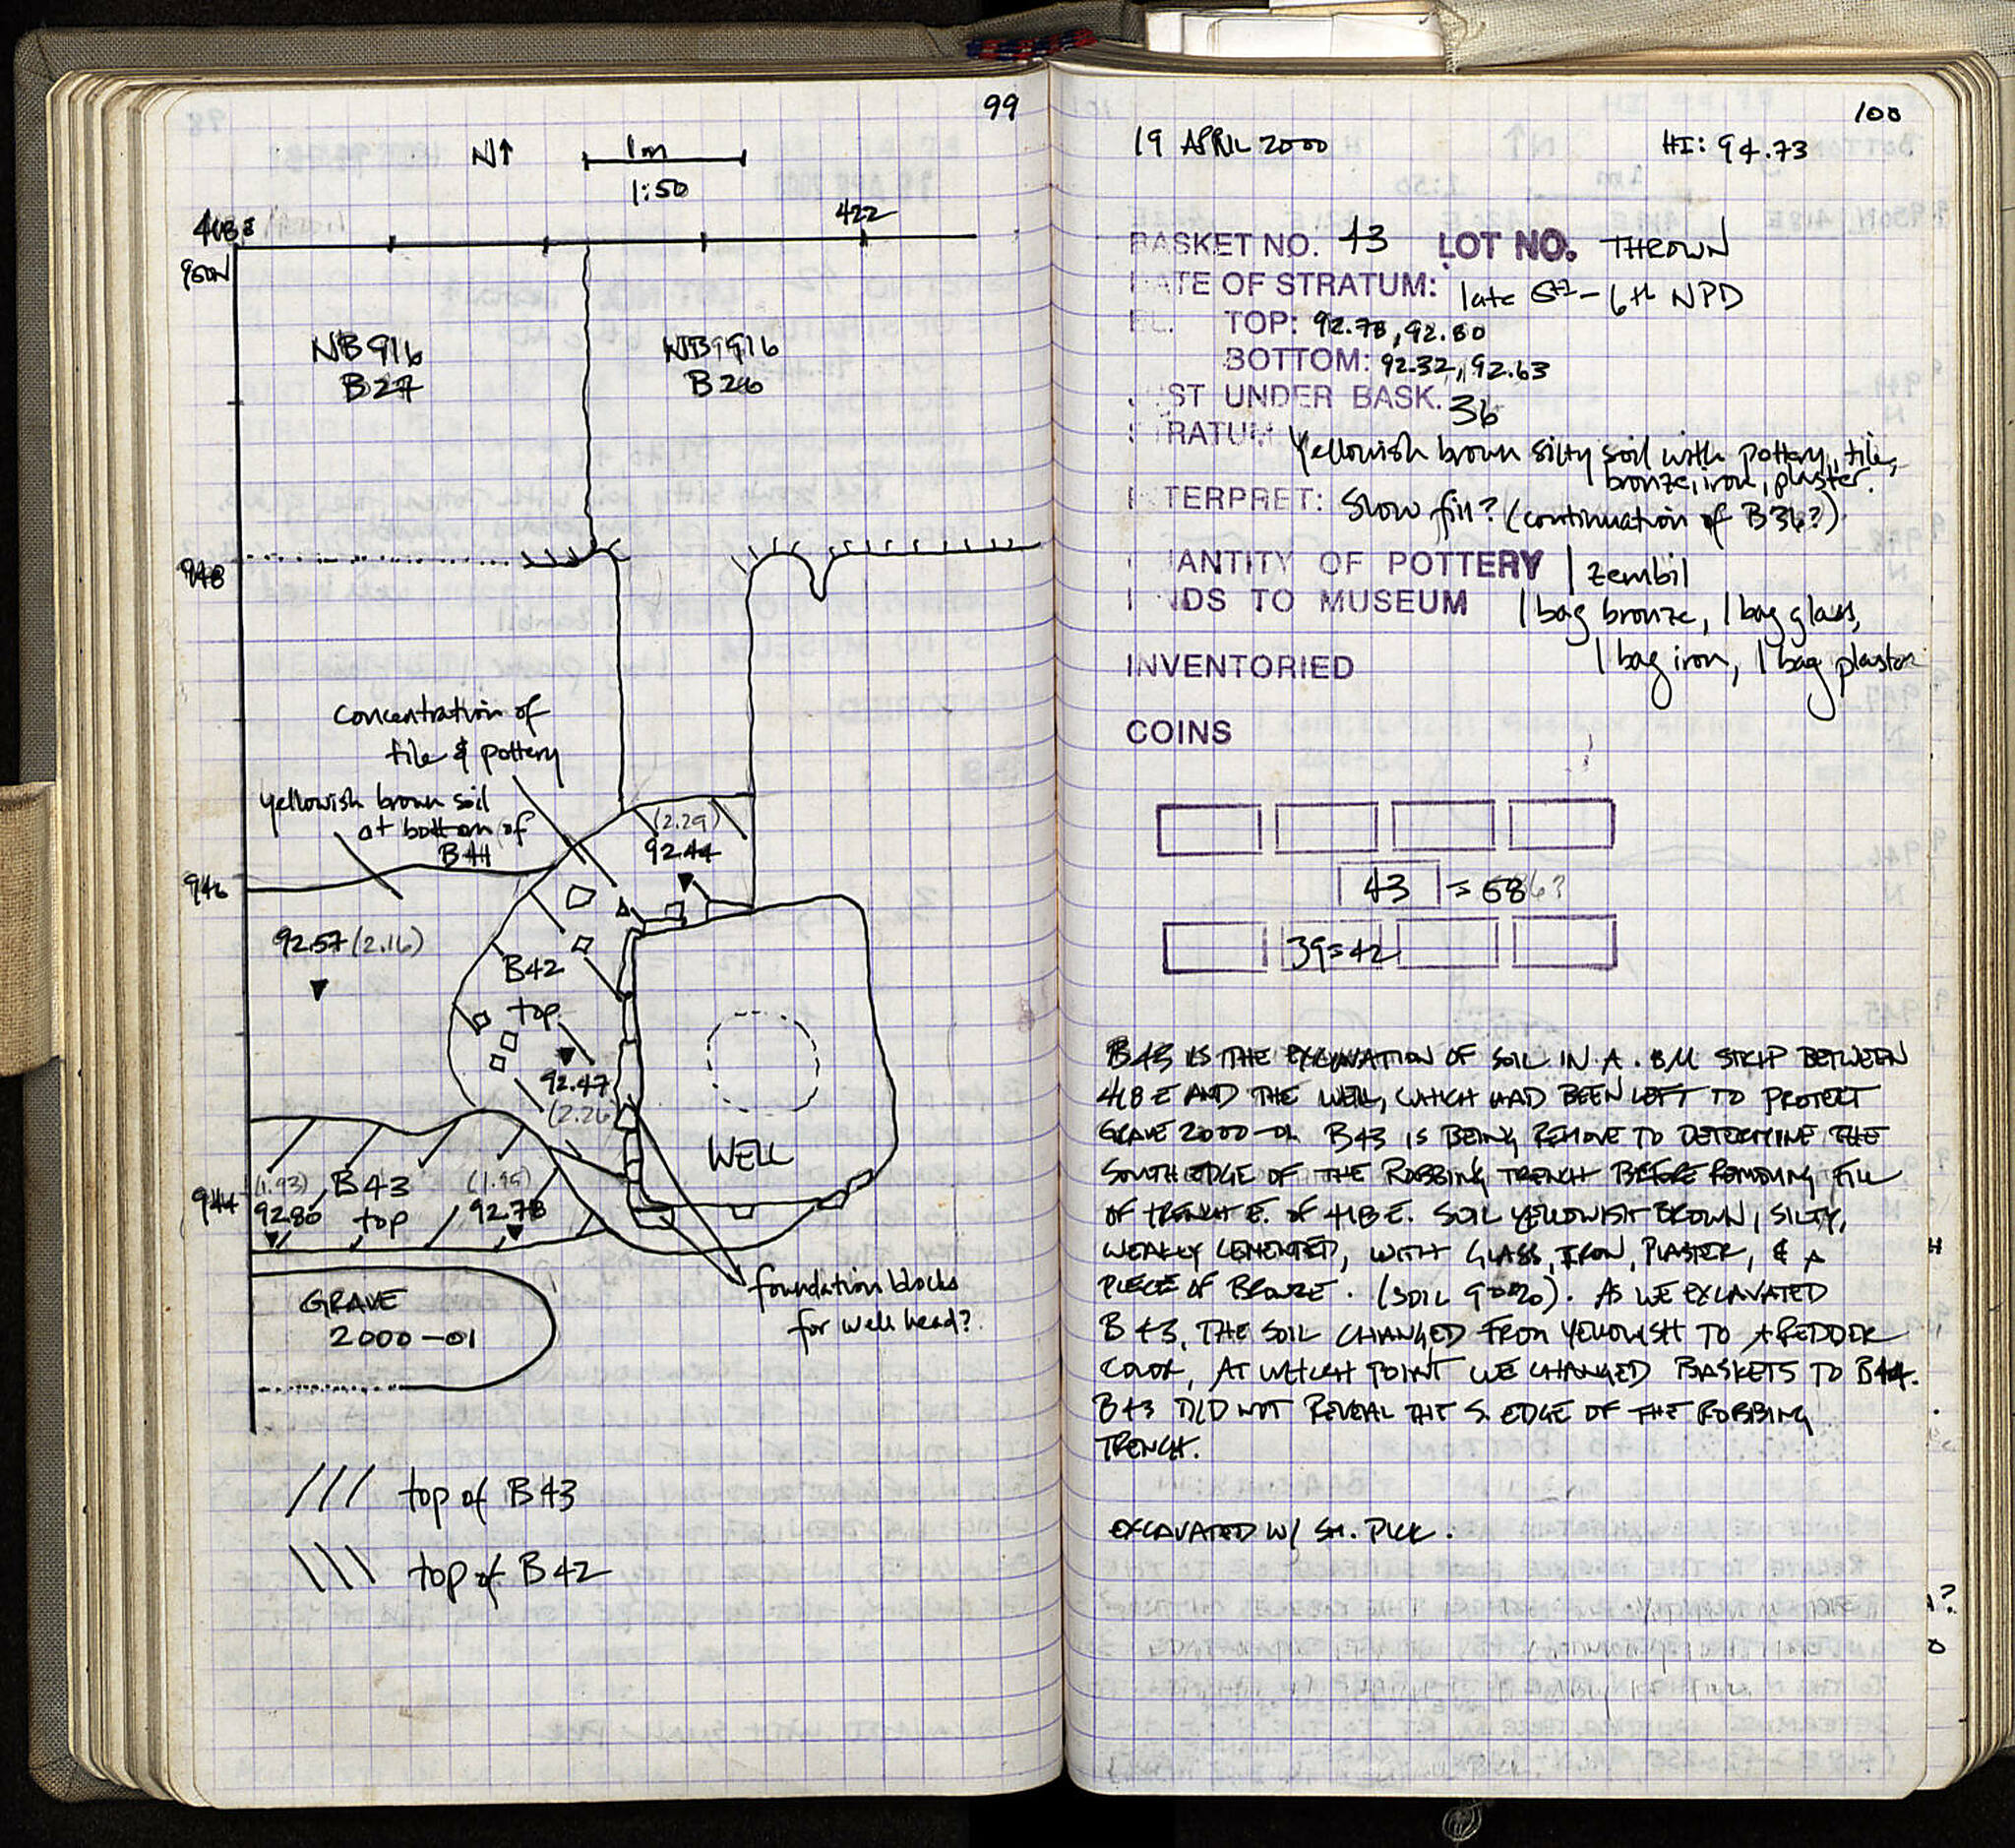 99
N↑
1m
1:50
418E
422
950N
NB916
B27
NB916
B26
948
Concentration of
tile & pottery
yellowish brown soil
at bottom of
B41
(2.29)
92.44
946
92.57 (2.16)
B42
top
92.47
(2.26)
WELL
944
(1.93)
B43
(1.95)
92.80
top
92.78
GRAVE
2000-01
foundation blocks
for well head?
/// top of B43
\\\ top of B42
100
19 APRIL 2000
HI: 94.73
BASKET NO. 43 LOT NO. THROWN
DATE OF STRATUM: late 5th-6th NPD
EL. TOP: 92.78, 92.80
BOTTOM: 92.32, 92.63
JUST UNDER BASK. 36
STRATUM Yellowish brown silty soil with pottery, tile,
bronze, iron, plaster.
INTERPRET: Slow fill? (continuation of B36?)
QUANTITY OF POTTERY 1 zembil
FINDS TO MUSEUM 1 bag bronze, 1 bag glass,
1 bag iron, 1 bag plaster
INVENTORIED
COINS
43 = 
39=42
B43 IS THE EXCAVATION OF SOIL IN A STRIP BETWEEN
418E AND THE WELL, WHICH HAD BEEN LEFT TO PROTECT
GRAVE 2000-01. B43 IS BEING REMOVE TO DETERMINE THE
SOUTH EDGE OF THE ROBBING TRENCH BEFORE REMOVING FILL
OF TRENCH E. OF 418E. SOIL YELLOWISH BROWN, SILTY,
WEAKLY CEMENTED, WITH GLASS, IRON, PLASTER, & A
PIECE OF BRONZE. (SOIL 90%). AS WE EXCAVATED
B43, THE SOIL CHANGED FROM YELLOWISH TO A REDDER
COLOR, AT WHICH POINT WE CHANGED BASKETS TO B44.
B43 DID NOT REVEAL THE S. EDGE OF THE ROBBING
TRENCH.
EXCAVATED W/ SM. PICK.